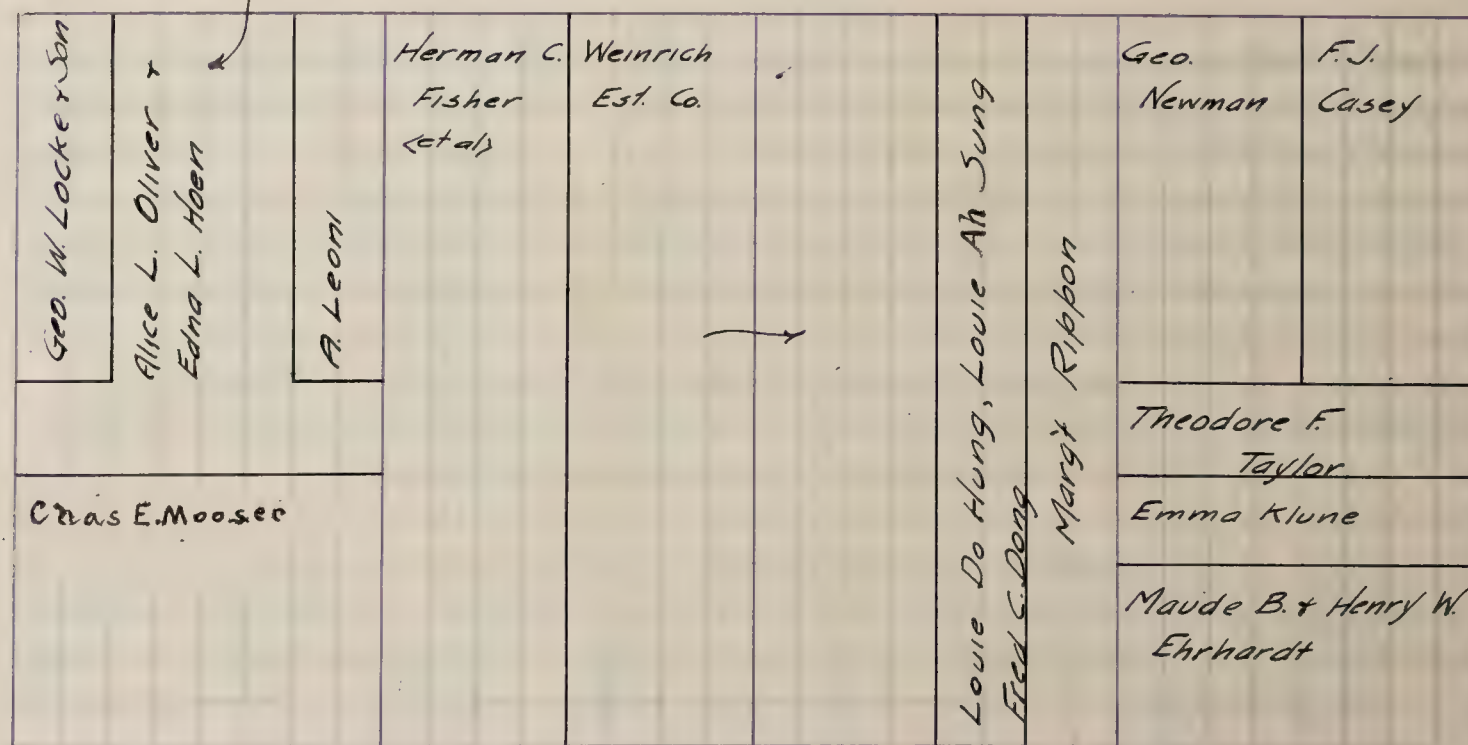 Geo. W. Locke & Son
Alice L. Oliver &
Edna L. Hoen
A. Leoni
Herman C.
Fisher
<et al>
Weinrich
Est. Co.
Louie Do Hung, Louie Ah Sung
Fred C. Dong
Marg't Rippon
Geo.
Newman
F. J.
Casey
Theodore F.
Taylor
Emma Klune
Maude B. & Henry W.
Ehrhardt
Chas E. Mooser